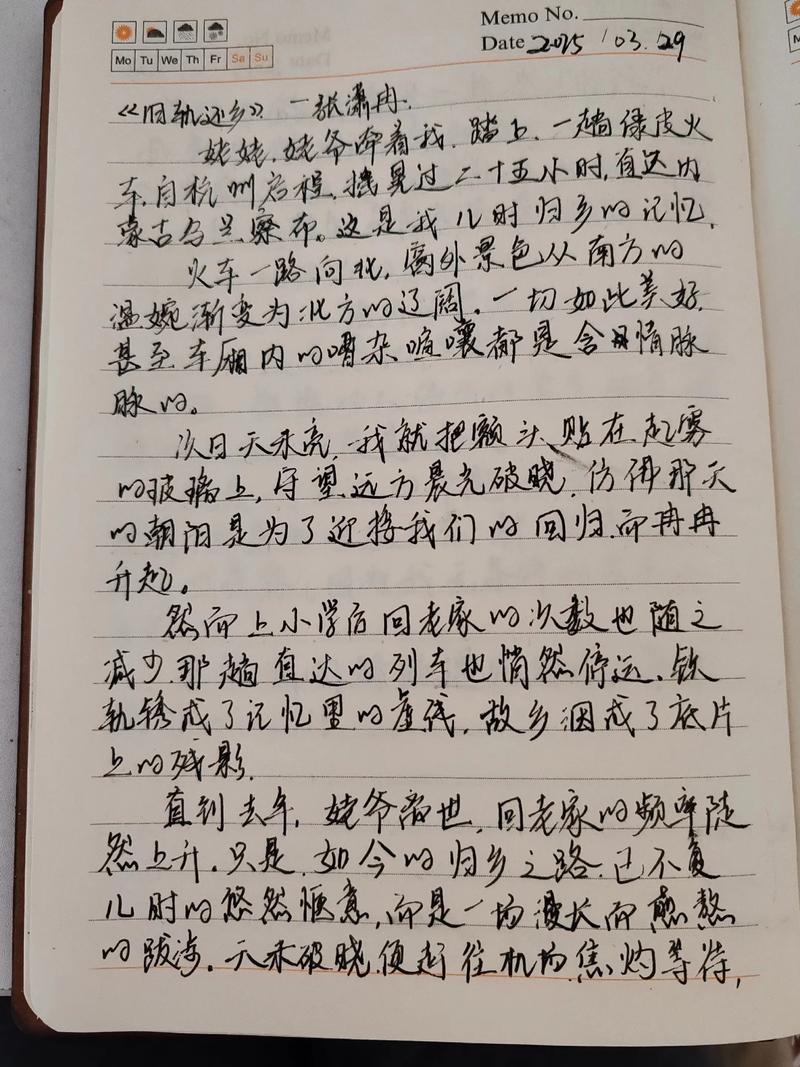 Memo No.
Mo Tu We Th Fr Sa Su
Date 2025 / 03. 29
《旧轨还乡》 —张潇冉.
姥姥、姥爷牵着我,踏上一趟绿皮火
车,自杭州启程,摇晃过二十五小时,直达内
蒙古乌兰察布。这是我儿时归乡的记忆.
火车一路向北,窗外景色从南方的
温婉渐变为北方的辽阔。一切如此美好,
甚至车厢内的嘈杂喧嚷都是含情脉
脉的。
次日天未亮,我就把额头贴在起雾
的玻璃上,守望远方晨光破晓,仿佛那天
的朝阳是为了迎接我们的回归而冉冉
升起。
然而上小学后回老家的次数也随之
减少,那趟直达的列车也悄然停运,铁
轨锈成了记忆里的虚线,故乡洇成了底片
上的残影.
直到去年,姥爷离世,回老家的频率陡
然上升。只是,如今的归乡之路,已不复
儿时的悠然惬意,而是一场漫长而煎熬
的跋涉。天未破晓,便赶往机场,焦灼等待,